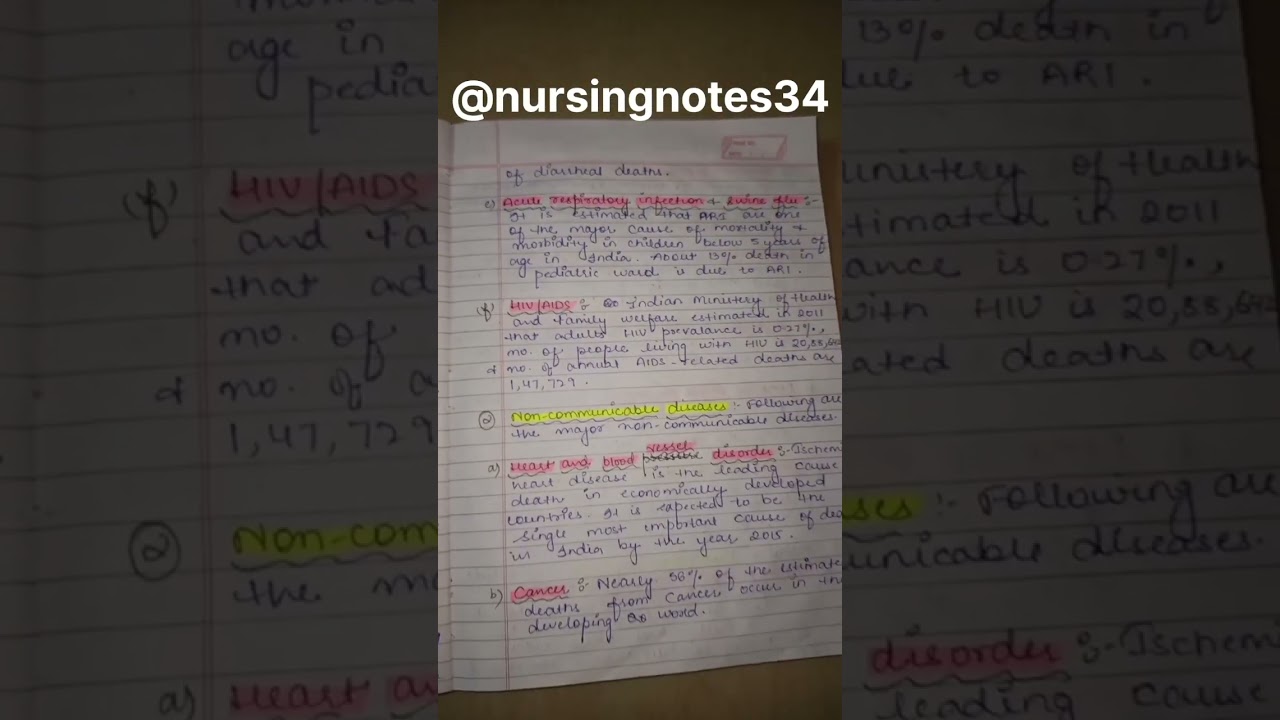 @nursingnotes34
of diarrheal deaths.
e) Acute respiratory infection & Swine flu :-
It is estimated that ARI are one
of the major cause of mortality &
morbidity in children below 5 years of
age in India. About 13% death in
pediatric ward is due to ARI.
(f) HIV/AIDS :- Indian Ministery of Health
and family welfare estimated in 2011
that adults HIV prevalance is 0.27%,
no. of people living with HIV is 20,88,642
& no. of annual AIDS-related deaths are
1,47,729.
② Non-communicable diseases :- Following are
the major non-communicable diseases.
a) Heart and blood vessel disorder :- Ischemi
heart disease is the leading cause
death in economically developed
countries. It is expected to be the
single most important cause of dea
in India by the year 2015.
b) Cancer :- Nearly 56% of the estimate
deaths from Cancer occur in the
developing world.